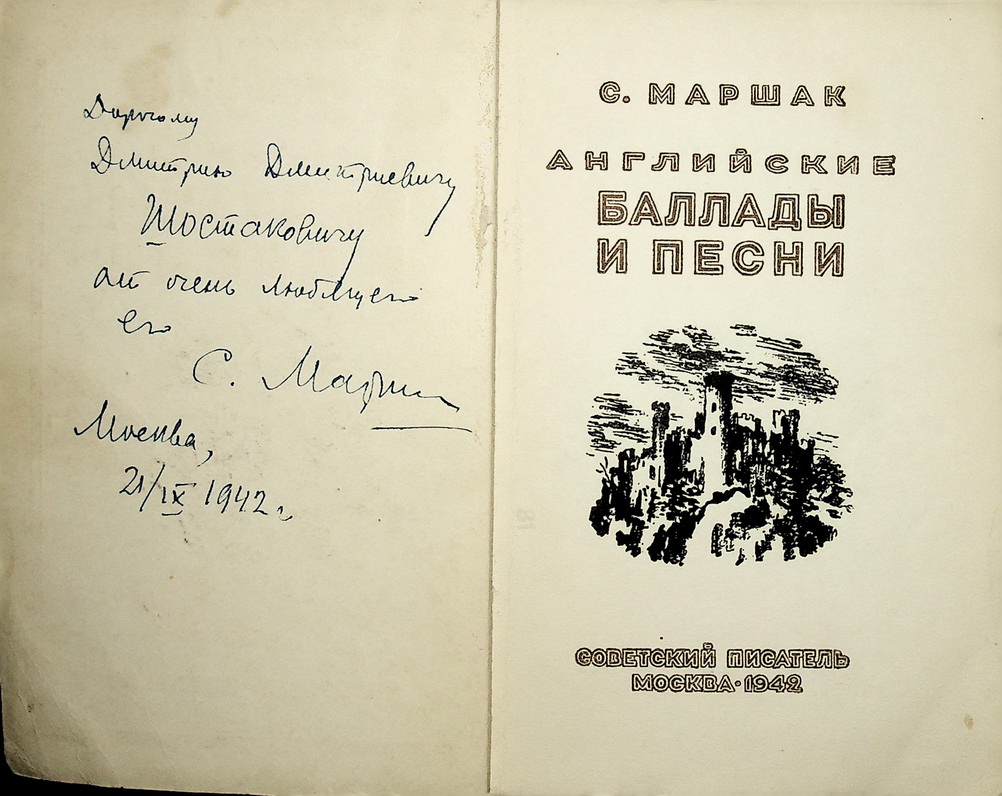 Дорогому
Дмитрию Дмитриевичу
Шостаковичу
от очень любящего
его
С. Маршак
Москва,
21/IX 1942 г.
С. МАРШАК
АНГЛИЙСКИЕ
БАЛЛАДЫ
И ПЕСНИ
СОВЕТСКИЙ ПИСАТЕЛЬ
МОСКВА·1942